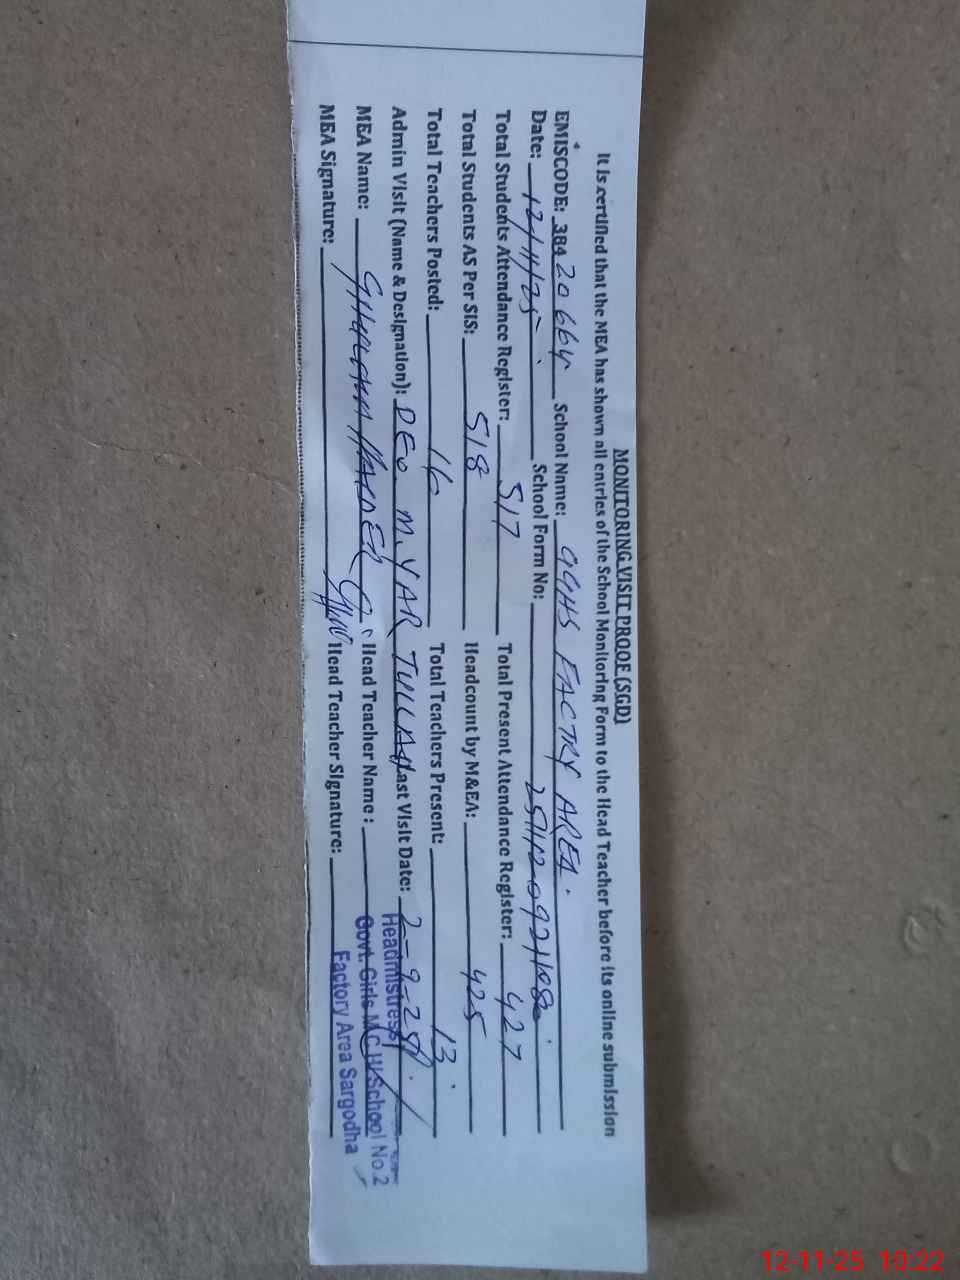 MONITORING VISIT PROOF (SGD)
It is certified that the MEA has shown all entries of the School Monitoring Form to the Head Teacher before its online submission
EMISCODE: 38420664 School Name: GGHS FACTRY AREA.
Date: 12/11/25 School Form No:
Total Students Attendance Register: 517 Total Present Attendance Register: 427
Total Students AS Per SIS: 518 Headcount by M&EA: 425
Total Teachers Posted: 16 Total Teachers Present: 13
Admin Visit (Name & Designation): DEO M. YAR TULLAH Last Visit Date: 2-9-25
MEA Name: GHULAM HAIDER Head Teacher Name:
MEA Signature: Head Teacher Signature:
Headmistress
Govt. Girls M.C.H/School No.2
Factory Area Sargodha
12-11-25 10:22